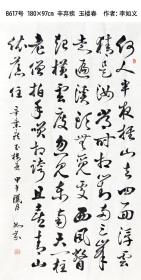 B617号 180×97cm 辛弃疾 玉楼春 作者：李如义
何人半夜推山去四面浮雲
猜是汝常时相對两三峰
走遍溪頭無覓處西風瞥
起雲横度忽見東南天一柱
老僧拍手笑相夸且喜青山
依舊住
辛棄疾玉楼春 甲午